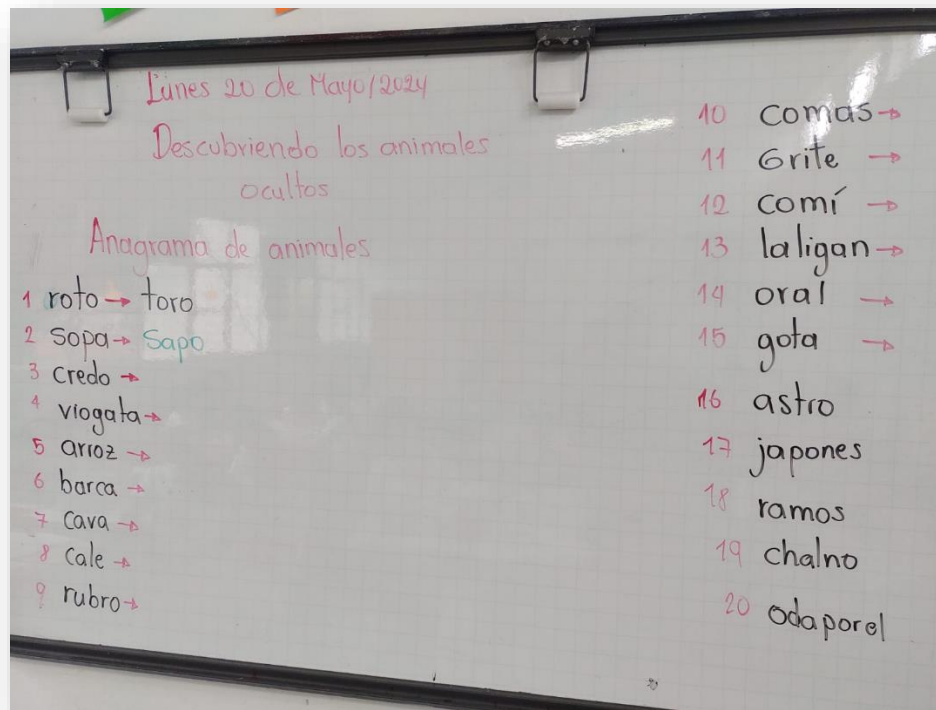 Lunes 20 de Mayo/2024
Descubriendo los animales
ocultos
Anagrama de animales
1 roto → toro
2 Sopa → Sapo
3 credo →
4 viogata →
5 arroz →
6 barca →
7 cava →
8 cale →
9 rubro →
10 comas →
11 Grite →
12 comí →
13 laligan →
14 oral →
15 gota →
16 astro
17 japones
18 ramos
19 chalno
20 odaporel